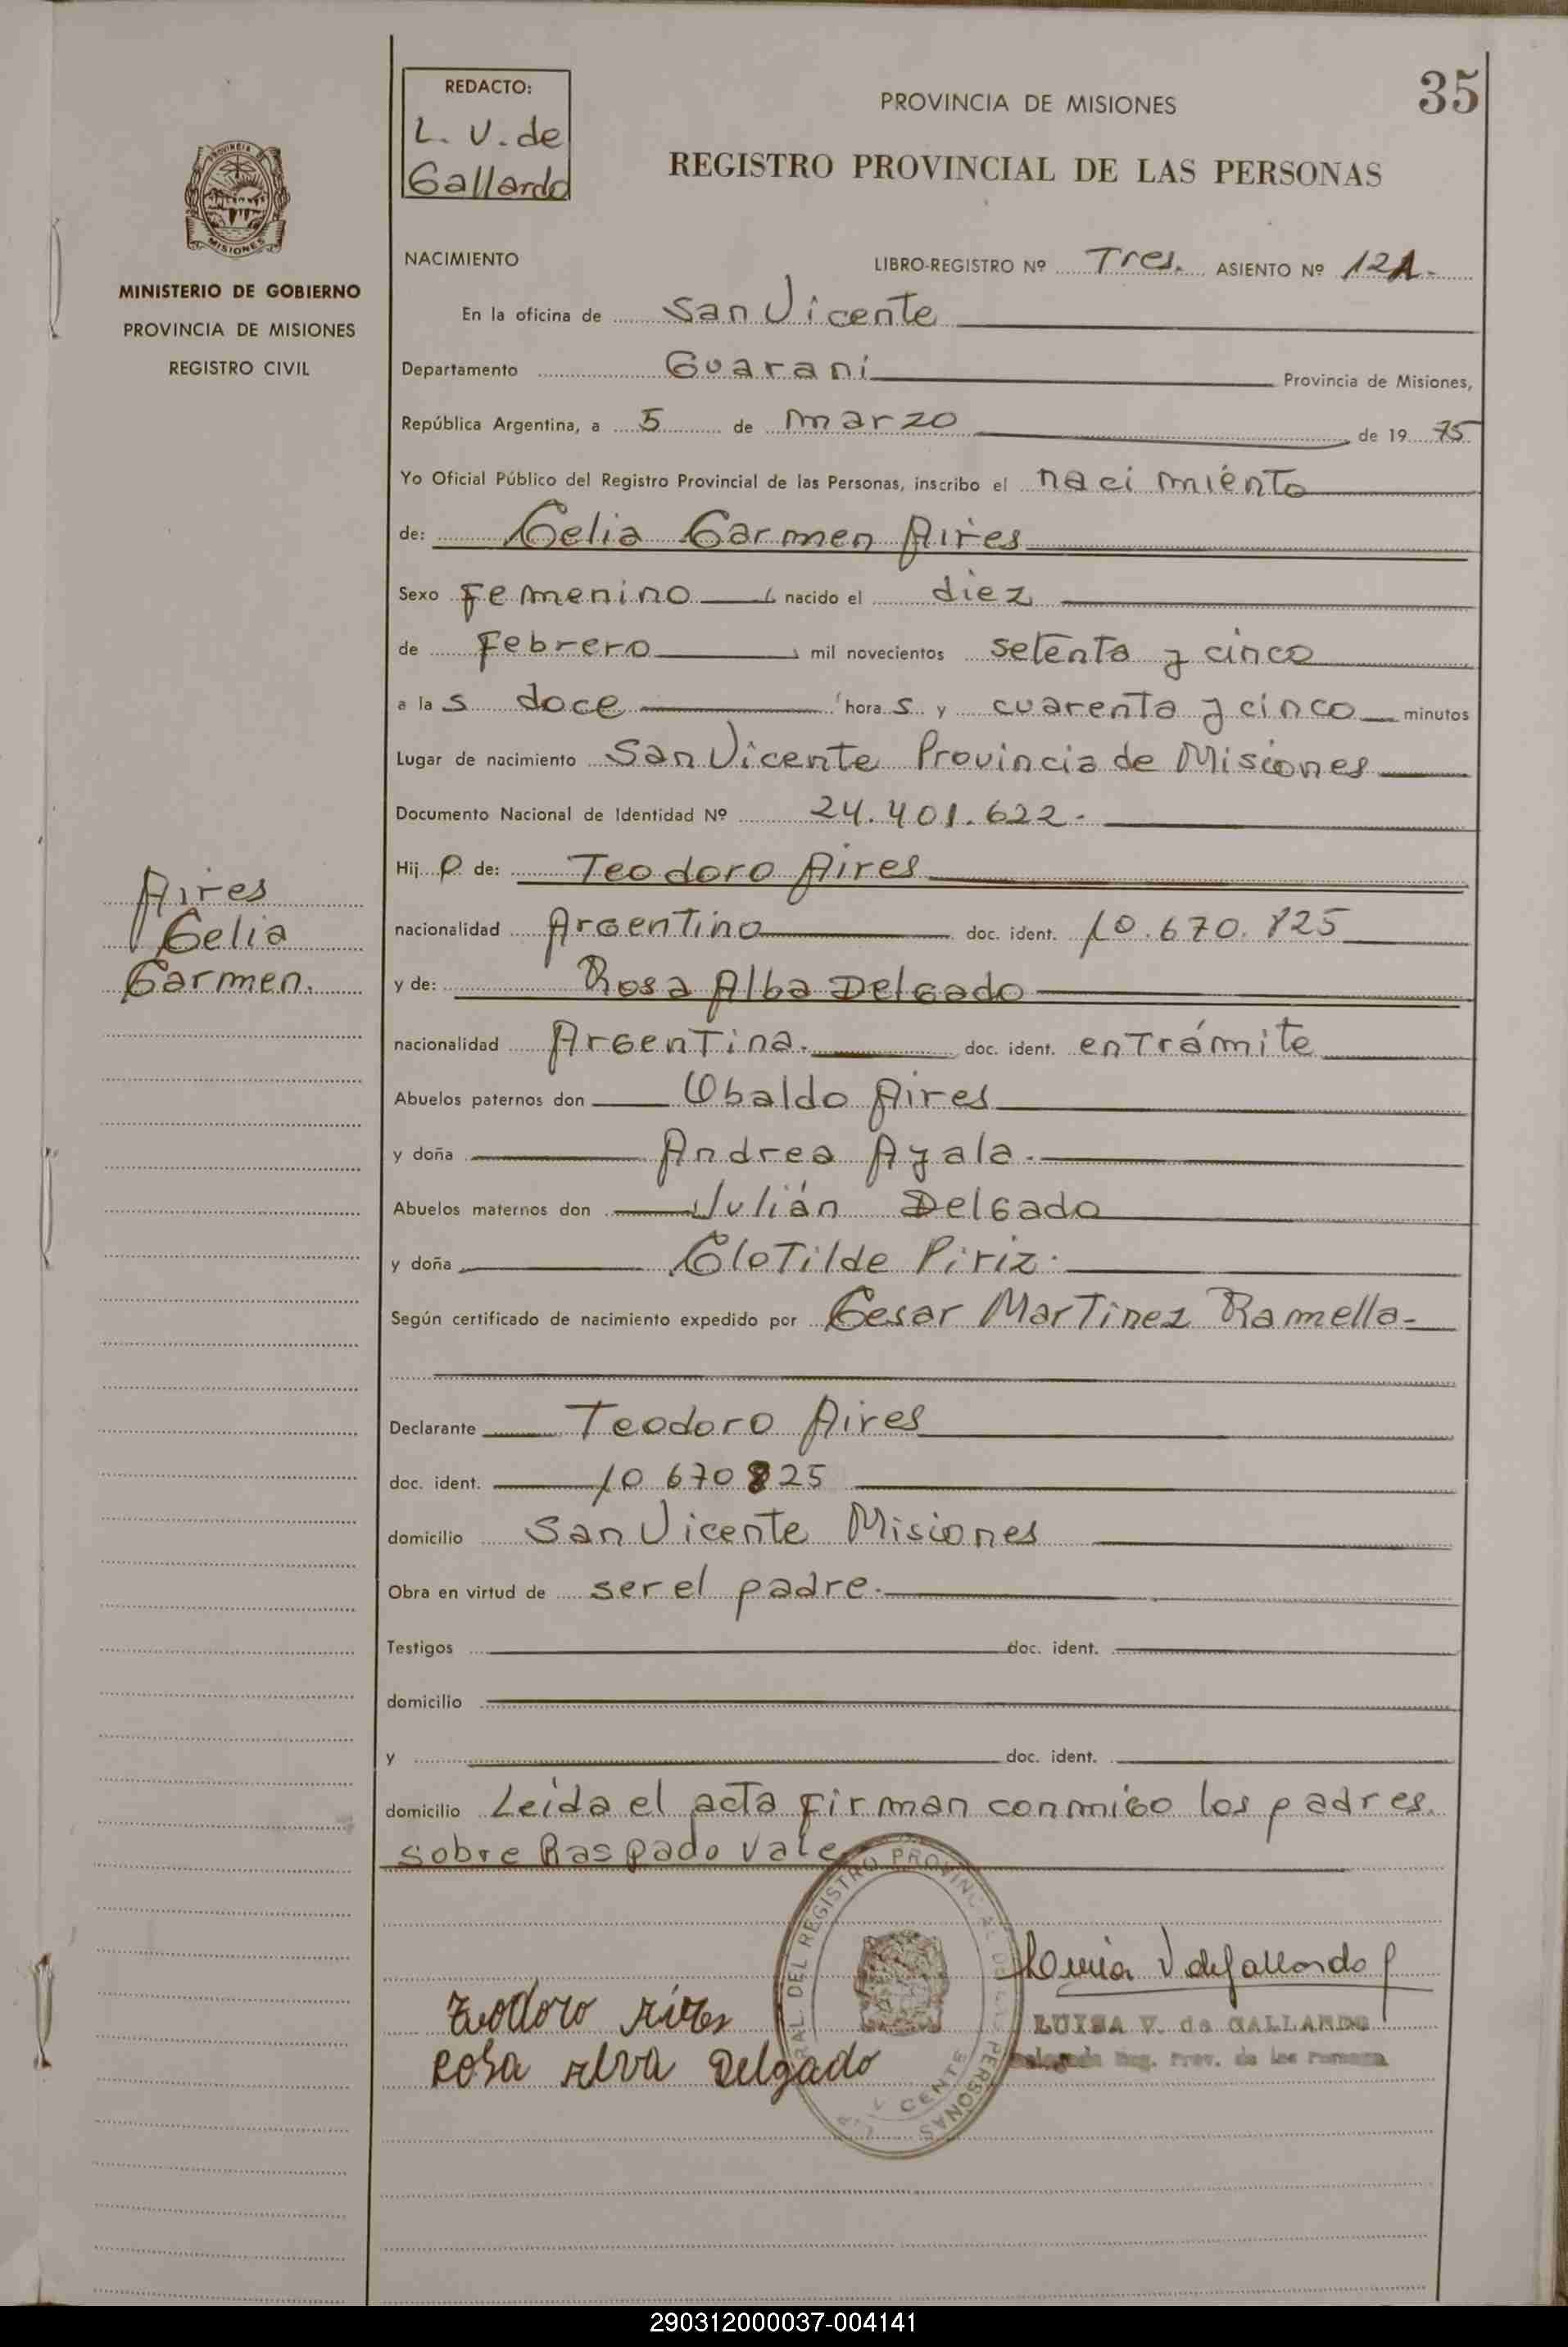 35
REDACTO:
L. V. de
Gallardo
PROVINCIA DE MISIONES
REGISTRO PROVINCIAL DE LAS PERSONAS
PROVINCIA DE
MISIONES
MINISTERIO DE GOBIERNO
PROVINCIA DE MISIONES
REGISTRO CIVIL
NACIMIENTO LIBRO-REGISTRO Nº Tres. ASIENTO Nº 121.-
En la oficina de San Vicente
Departamento Guaraní Provincia de Misiones,
República Argentina, a 5 de marzo de 19 75
Yo Oficial Público del Registro Provincial de las Personas, inscribo el nacimiento
de: Celia Carmen Aires
Sexo Femenino nacido el diez
de Febrero mil novecientos setenta y cinco
a la s doce hora s y cuarenta y cinco minutos
Lugar de nacimiento San Vicente Provincia de Misiones
Documento Nacional de Identidad Nº 24.401.622.-
Hij o de: Teodoro Aires
Aires
Celia
Carmen.
nacionalidad Argentino doc. ident. 10.670.825
y de: Rosa Alba Delgado
nacionalidad Argentina. doc. ident. en Trámite
Abuelos paternos don Ubaldo Aires
y doña Andrea Ayala.
Abuelos maternos don Julián Delgado
y doña Clotilde Piriz.
Según certificado de nacimiento expedido por Cesar Martinez Ramella-
Declarante Teodoro Aires
doc. ident. 10 670 825
domicilio San Vicente Misiones
Obra en virtud de ser el padre.
Testigos doc. ident.
domicilio
y doc. ident.
domicilio Leída el acta firman conmigo los padres.
sobre Raspado vale
RAL DEL REGISTRO PROVINCIAL DE LAS PERSONAS
Luisa V de Gallardo
Teodoro Aires
LUISA V. de GALLARDO
Rosa Alva Delgado
Delegada Reg. Prov. de las Personas
290312000037-004141